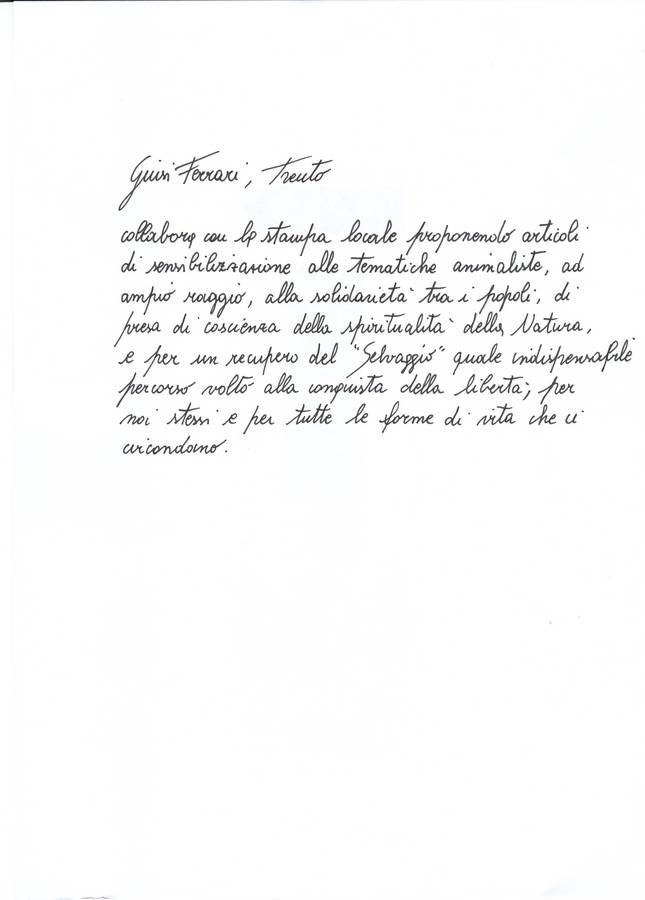 Giusi Ferrari, Trento
collabora con la stampa locale proponendo articoli
di sensibilizzazione alle tematiche animaliste, ad
ampio raggio, alla solidarietà tra i popoli, di
presa di coscienza della spiritualità della Natura,
e per un recupero del "Selvaggio" quale indispensabile
percorso volto alla conquista della libertà; per
noi stessi e per tutte le forme di vita che ci
circondano.